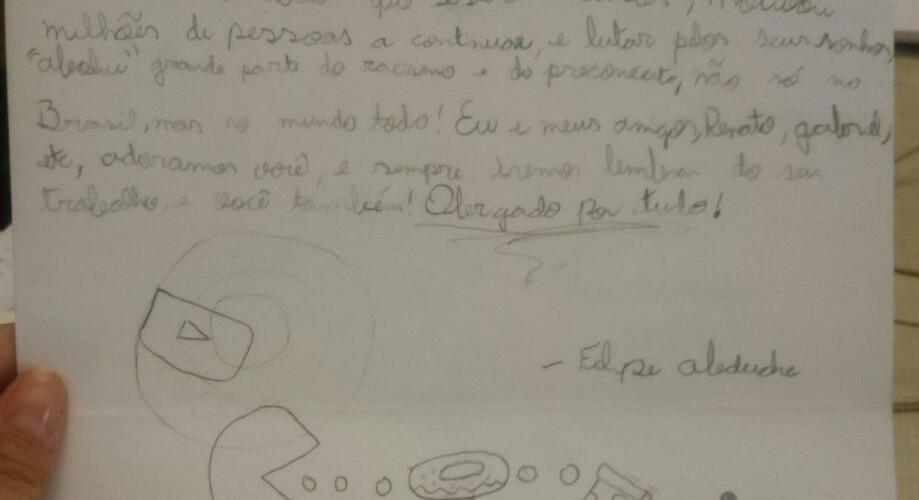 que
milhões de pessoas a continuar, e lutar pelos seus sonhos,
grande parte do racismo e do preconceito, não só no
Brasil, mas no mundo todo! Eu e meus amigos, Renato,
etc, adoramos você, e sempre iremos lembrar do seu
trabalho, e você também! Obrgado por tudo!